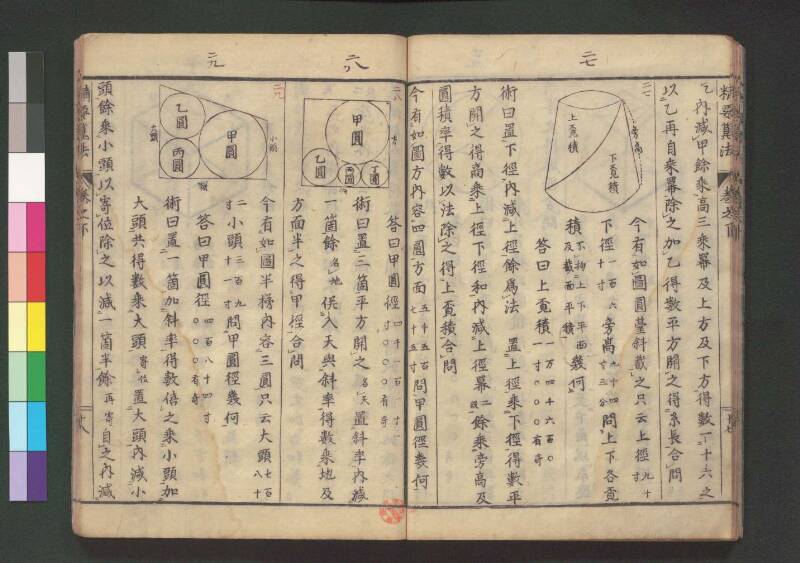 二七
二八
二九
精要算法 卷之下
乞内減甲餘乘高三乘冪及上方及下方得數一十六之
以乙再自乘冪除之加乙得數平方開之得糸長合問
二七
旁高
上覔積
下覔積
今有如圖圓臺斜截之只云上徑九十寸
下徑一百六十寸旁高九十四寸三分問上下各覔
積不拘上下平面及截面平積幾何
答曰上覔積一万四千六百〇一寸〇〇〇有奇
術曰置下徑内減上徑餘爲法 置上徑乘下徑得數平
方開之得高乘上徑下徑和内減上徑冪二段餘乘旁高及
圓積率得數以法除之得上覔積合問
二八
甲圓
乙圓
丙圓
丁圓
方
今有如圖方内容四圓方面五千五百七十五寸問甲圓徑幾何
答曰甲圓徑四千一百一十寸〇〇〇有奇
術曰置三箇平方開之名天置斜率内減
一箇餘名地 倍入天與斜率得數乘地及
方面半之得甲徑合問
二九
甲圓
乙圓
丙圓
大頭
小頭
今有如圖半梯内容三圓只云大頭七百八十二寸小頭三百九十一寸問甲圓徑幾何
答曰甲圓徑四百八十四寸〇〇〇有奇
術曰置一箇加斜率得數倍之乘小頭加
大頭共得數乘大頭寄位置大頭内減小
頭餘乘小頭以寄位除之以減一箇半餘再寄自之内減
精要算法 卷之下